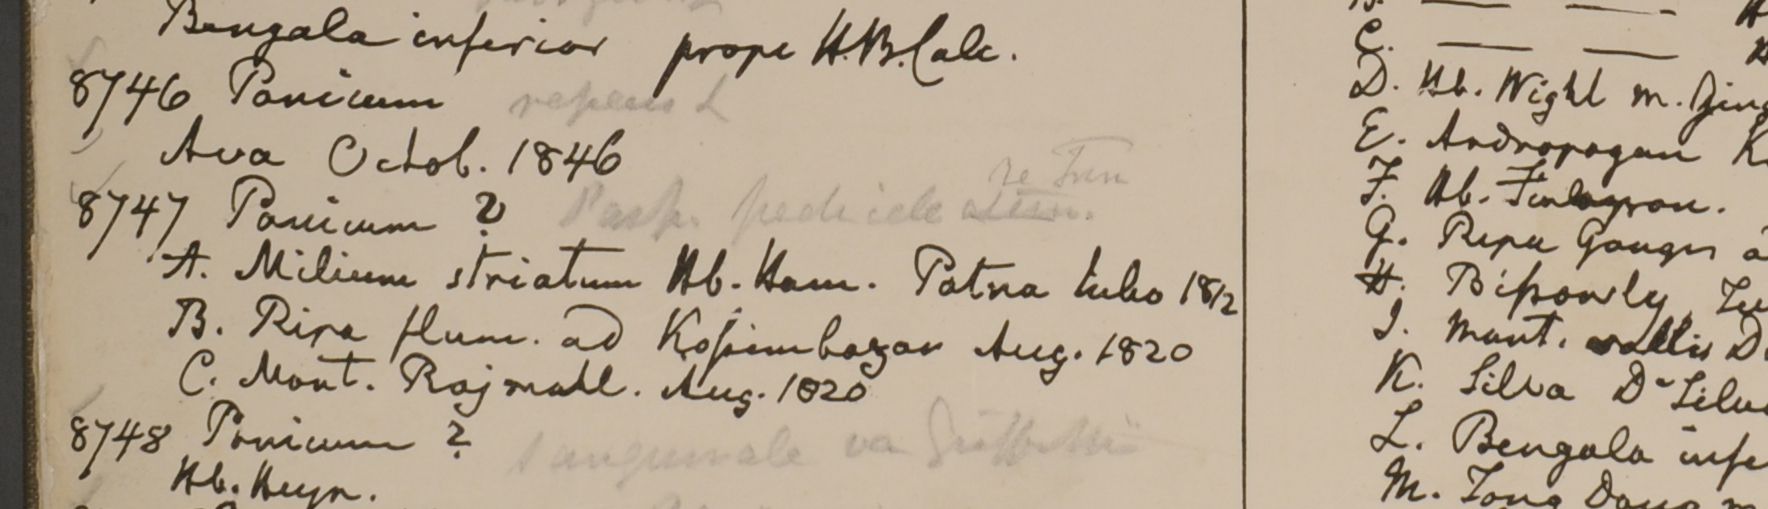 Bengala inferior prope H.B. Calc.
8746 Panicum repens L
Ava Octob. 1846
8747 Panicum ? Pasp.
A. Milium striatum Hb. Ham. Patna 1812
B. Ripa flum. ad Kossimbazar Aug. 1820
C. Mont. Rajmahl. Aug. 1820
8748 Panicum ? sanguinale va Griffithii
Hb. Heyn.
C. — —
D. Hb. Wight
E. Andropogon
F. Hb. Finlayson.
G. Ripa Gangis
H.
I. Mont. vallis
K. Silva De Silva
L. Bengala infe
M. Tong Doung